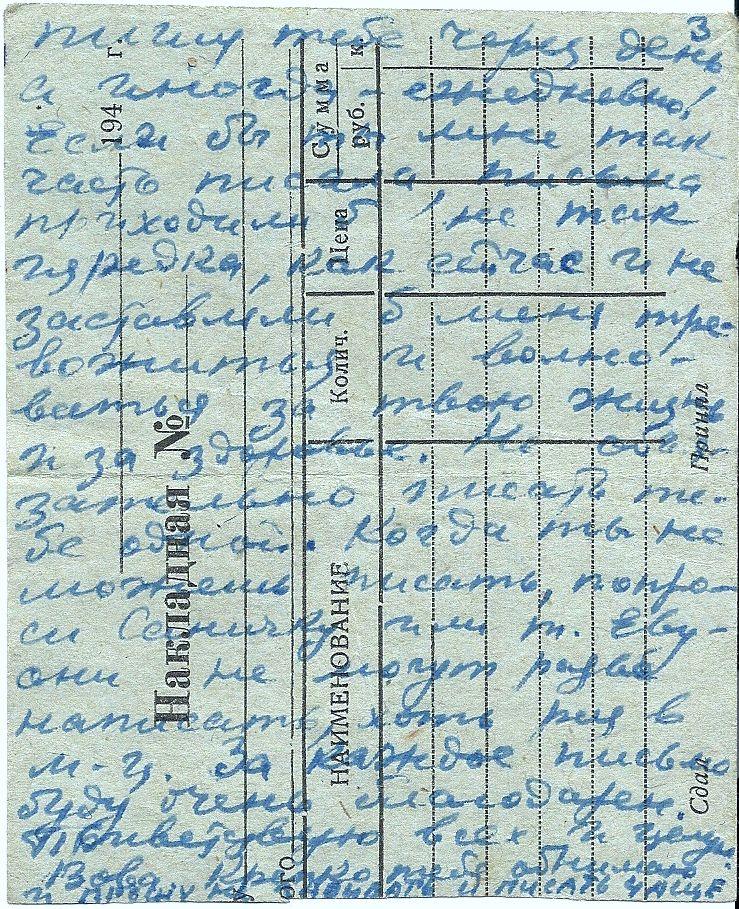 3
пишу тебе через день
а иногда - ежедневно!
Если бы ты мне так
часто писала письма
приходили б не так
изредка, как сейчас и не
заставляли б меня тре-
вожиться и волно-
ваться за твою жизнь
и за здоровье. Не обя-
зательно писать те-
бе одной. Когда ты не
можешь писать, попро-
си Сонечку или т. Еву -
они не могут разве
написать хоть раз в
м-ц. За каждое письмо
буду очень благодарен.
Приветствую всех и целую.
Вова. Крепко тебя обнимаю
и прошу не и писать чаще
194 г.
Накладная №
НАИМЕНОВАНИЕ
Колич.
Цена
Сумма
руб.
к.
Сдал
Принял